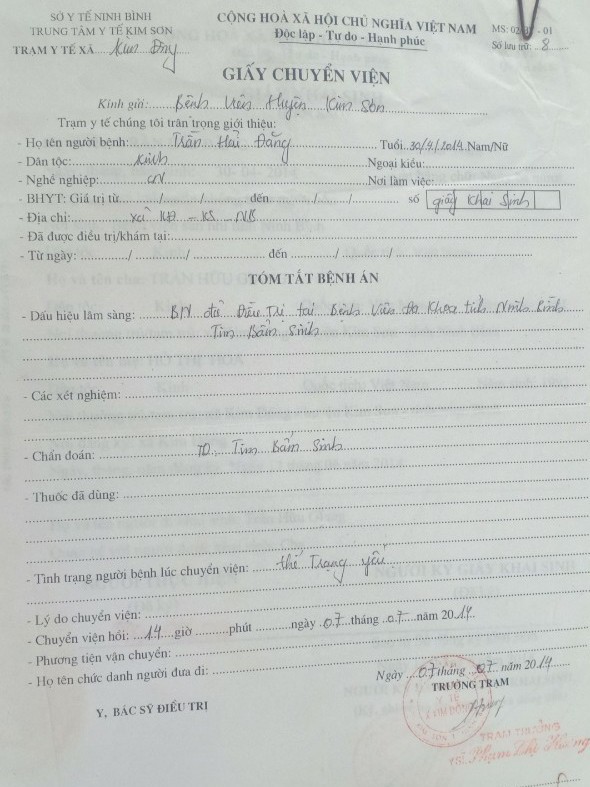 SỞ Y TẾ NINH BÌNH
TRUNG TÂM Y TẾ KIM SƠN
TRẠM Y TẾ XÃ Kim Đông
CỘNG HOÀ XÃ HỘI CHỦ NGHĨA VIỆT NAM
Độc lập - Tự do - Hạnh phúc
MS: 02 - 01
Số lưu trữ: 8
GIẤY CHUYỂN VIỆN
Kính gửi: Bệnh Viện Huyện Kim Sơn
Trạm y tế chúng tôi trân trọng giới thiệu:
- Họ tên người bệnh: Trần Hải Đăng Tuổi 30/4/2014 Nam/Nữ
- Dân tộc: Kinh Ngoại kiều:
- Nghề nghiệp: Nơi làm việc:
- BHYT: Giá trị từ / / đến / / số giấy Khai Sinh
- Địa chỉ: xã KĐ - KS - NB
- Đã được điều trị/khám tại:
- Từ ngày: / / đến / /
TÓM TẮT BỆNH ÁN
- Dấu hiệu lâm sàng: BN đã Điều Trị tại Bệnh Viện đa Khoa tỉnh Ninh Bình
Tim Bẩm Sinh
- Các xét nghiệm:
- Chẩn đoán: TD. Tim Bẩm Sinh
- Thuốc đã dùng:
- Tình trạng người bệnh lúc chuyển viện: thể Trạng yếu
- Lý do chuyển viện:
- Chuyển viện hồi: 14 giờ phút ngày 07 tháng 07 năm 2014
- Phương tiện vận chuyển:
- Họ tên chức danh người đưa đi:
Ngày 07 tháng 07 năm 2014
Y, BÁC SỸ ĐIỀU TRỊ
TRƯỞNG TRẠM
TRẠM TRƯỞNG